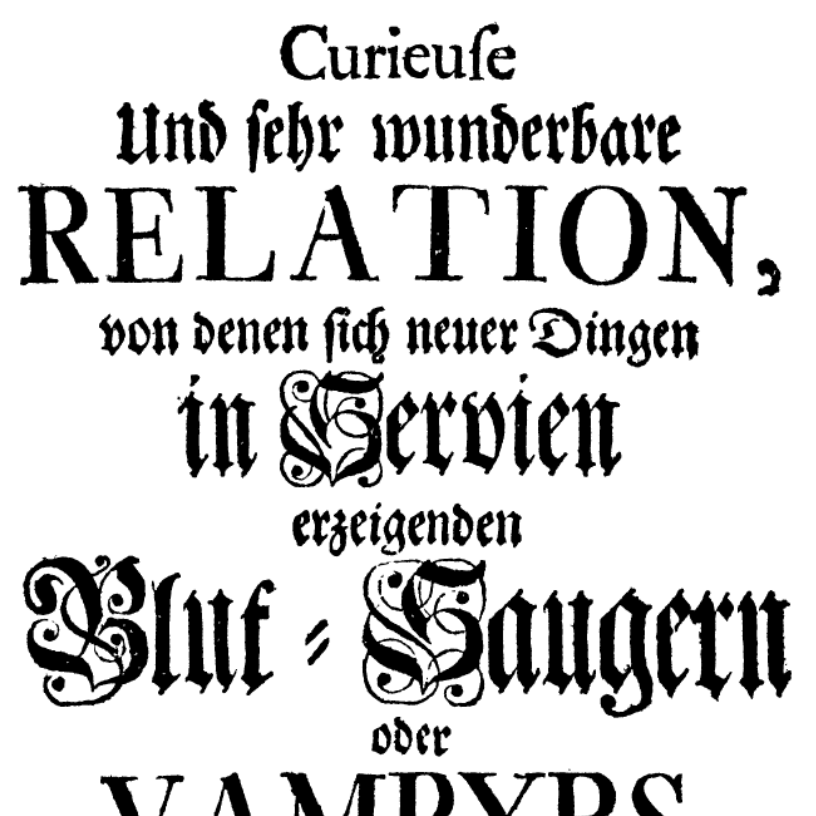 Curieuſe
Und ſehr wunderbare
RELATION,
von denen ſich neuer Dingen
in Servien
erzeigenden
Blut-Saugern
oder
VAMPYRS